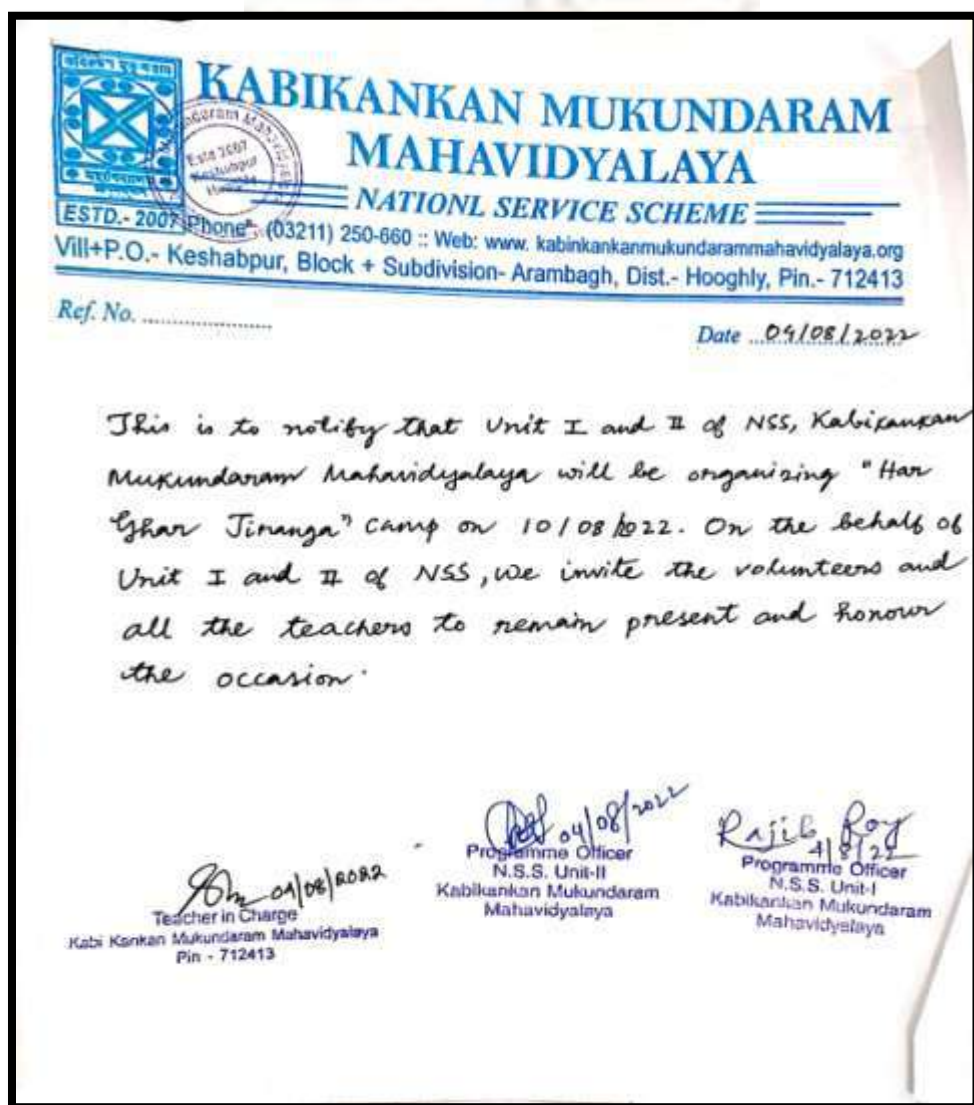 KABIKANKAN MUKUNDARAM
MAHAVIDYALAYA
NATIONL SERVICE SCHEME
ESTD.- 2007 Phone: (03211) 250-660 :: Web: www. kabinkankanmukundarammahavidyalaya.org
Vill+P.O.- Keshabpur, Block + Subdivision- Arambagh, Dist.- Hooghly, Pin.- 712413
Ref. No. ......................
Date ...04/08/2022
This is to notify that Unit I and II of NSS, Kabikankan
Mukundaram Mahavidyalaya will be organizing "Har
Ghar Tiranga" camp on 10/08/2022. On the behalf of
Unit I and II of NSS, We invite the volunteers and
all the teachers to remain present and honour
the occasion.
04/08/2022
Teacher in Charge
Kabi Kankan Mukundaram Mahavidyalaya
Pin - 712413
04/08/2022
Programme Officer
N.S.S. Unit-II
Kabikankan Mukundaram
Mahavidyalaya
Rajib Roy
4/8/22
Programme Officer
N.S.S. Unit-I
Kabikankan Mukundaram
Mahavidyalaya